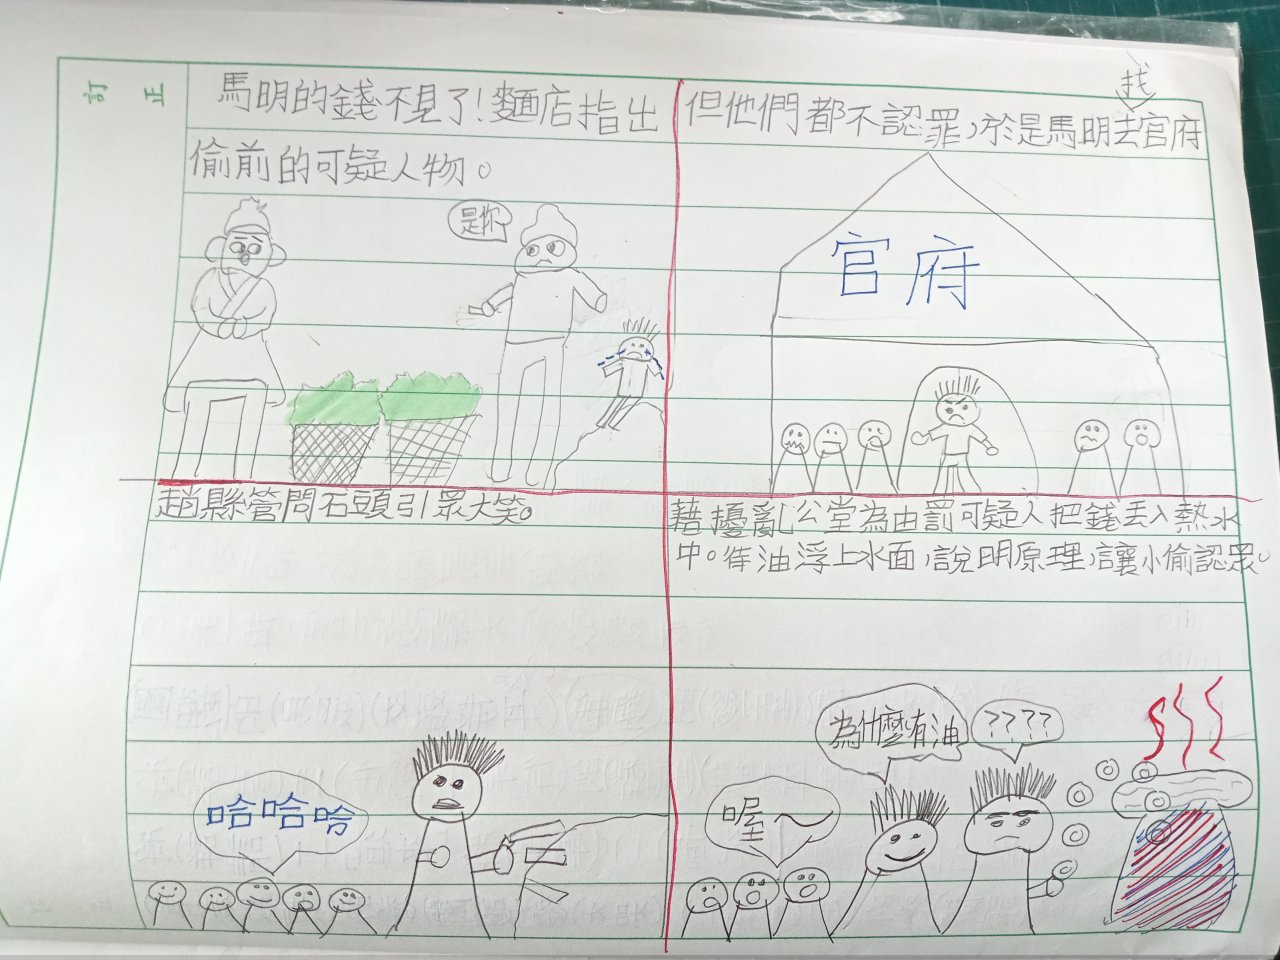 訂正
馬明的錢不見了!麵店指出
偷前的可疑人物。
是你
找
但他們都不認罪,於是馬明去官府
官府
趙縣管問石頭引眾大笑。
哈哈哈
藉擾亂公堂為由罰可疑人把錢丟入熱水
中。待油浮上水面,說明原理,讓小偷認眾。
為什麼有油
????
喔~